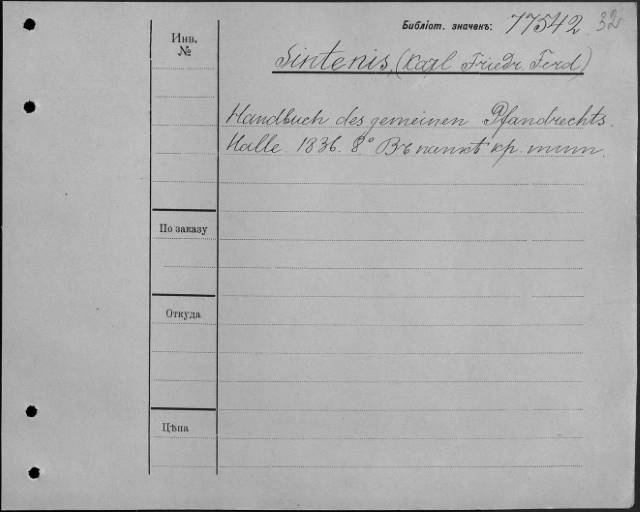 Библіот. значекъ: 77542 32
Инв.
№
Sintenis, (Karl Friedr. Ferd)
Handbuch des gemeinen Pfandrechts.
Halle 1836. 8° Въ папкѣ кр. тит.
По заказу
Откуда
Цѣна